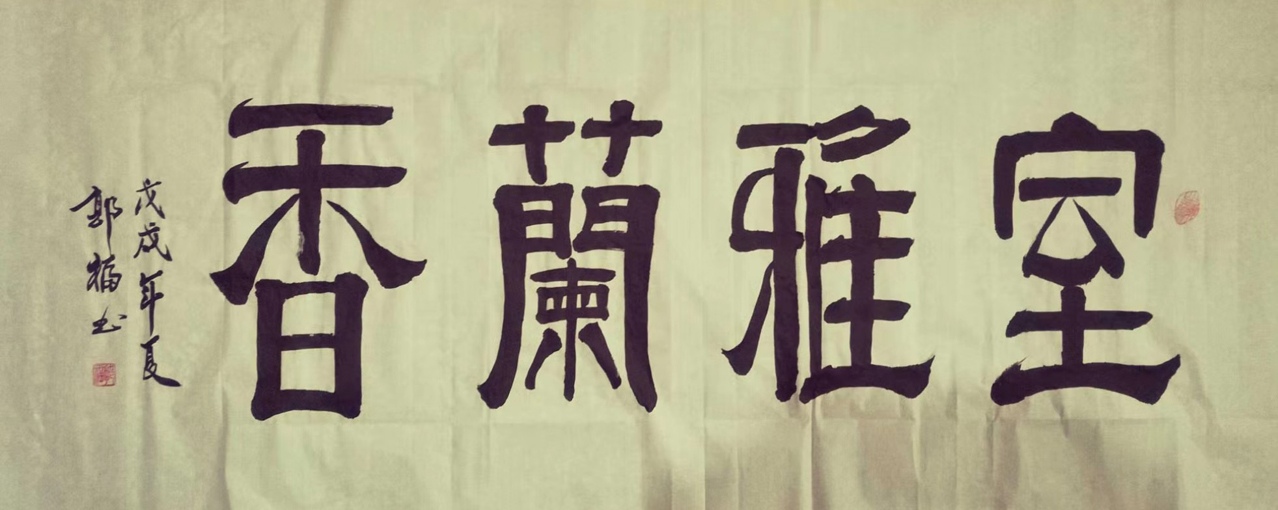 室雅蘭香
戊戌年夏
郭福书